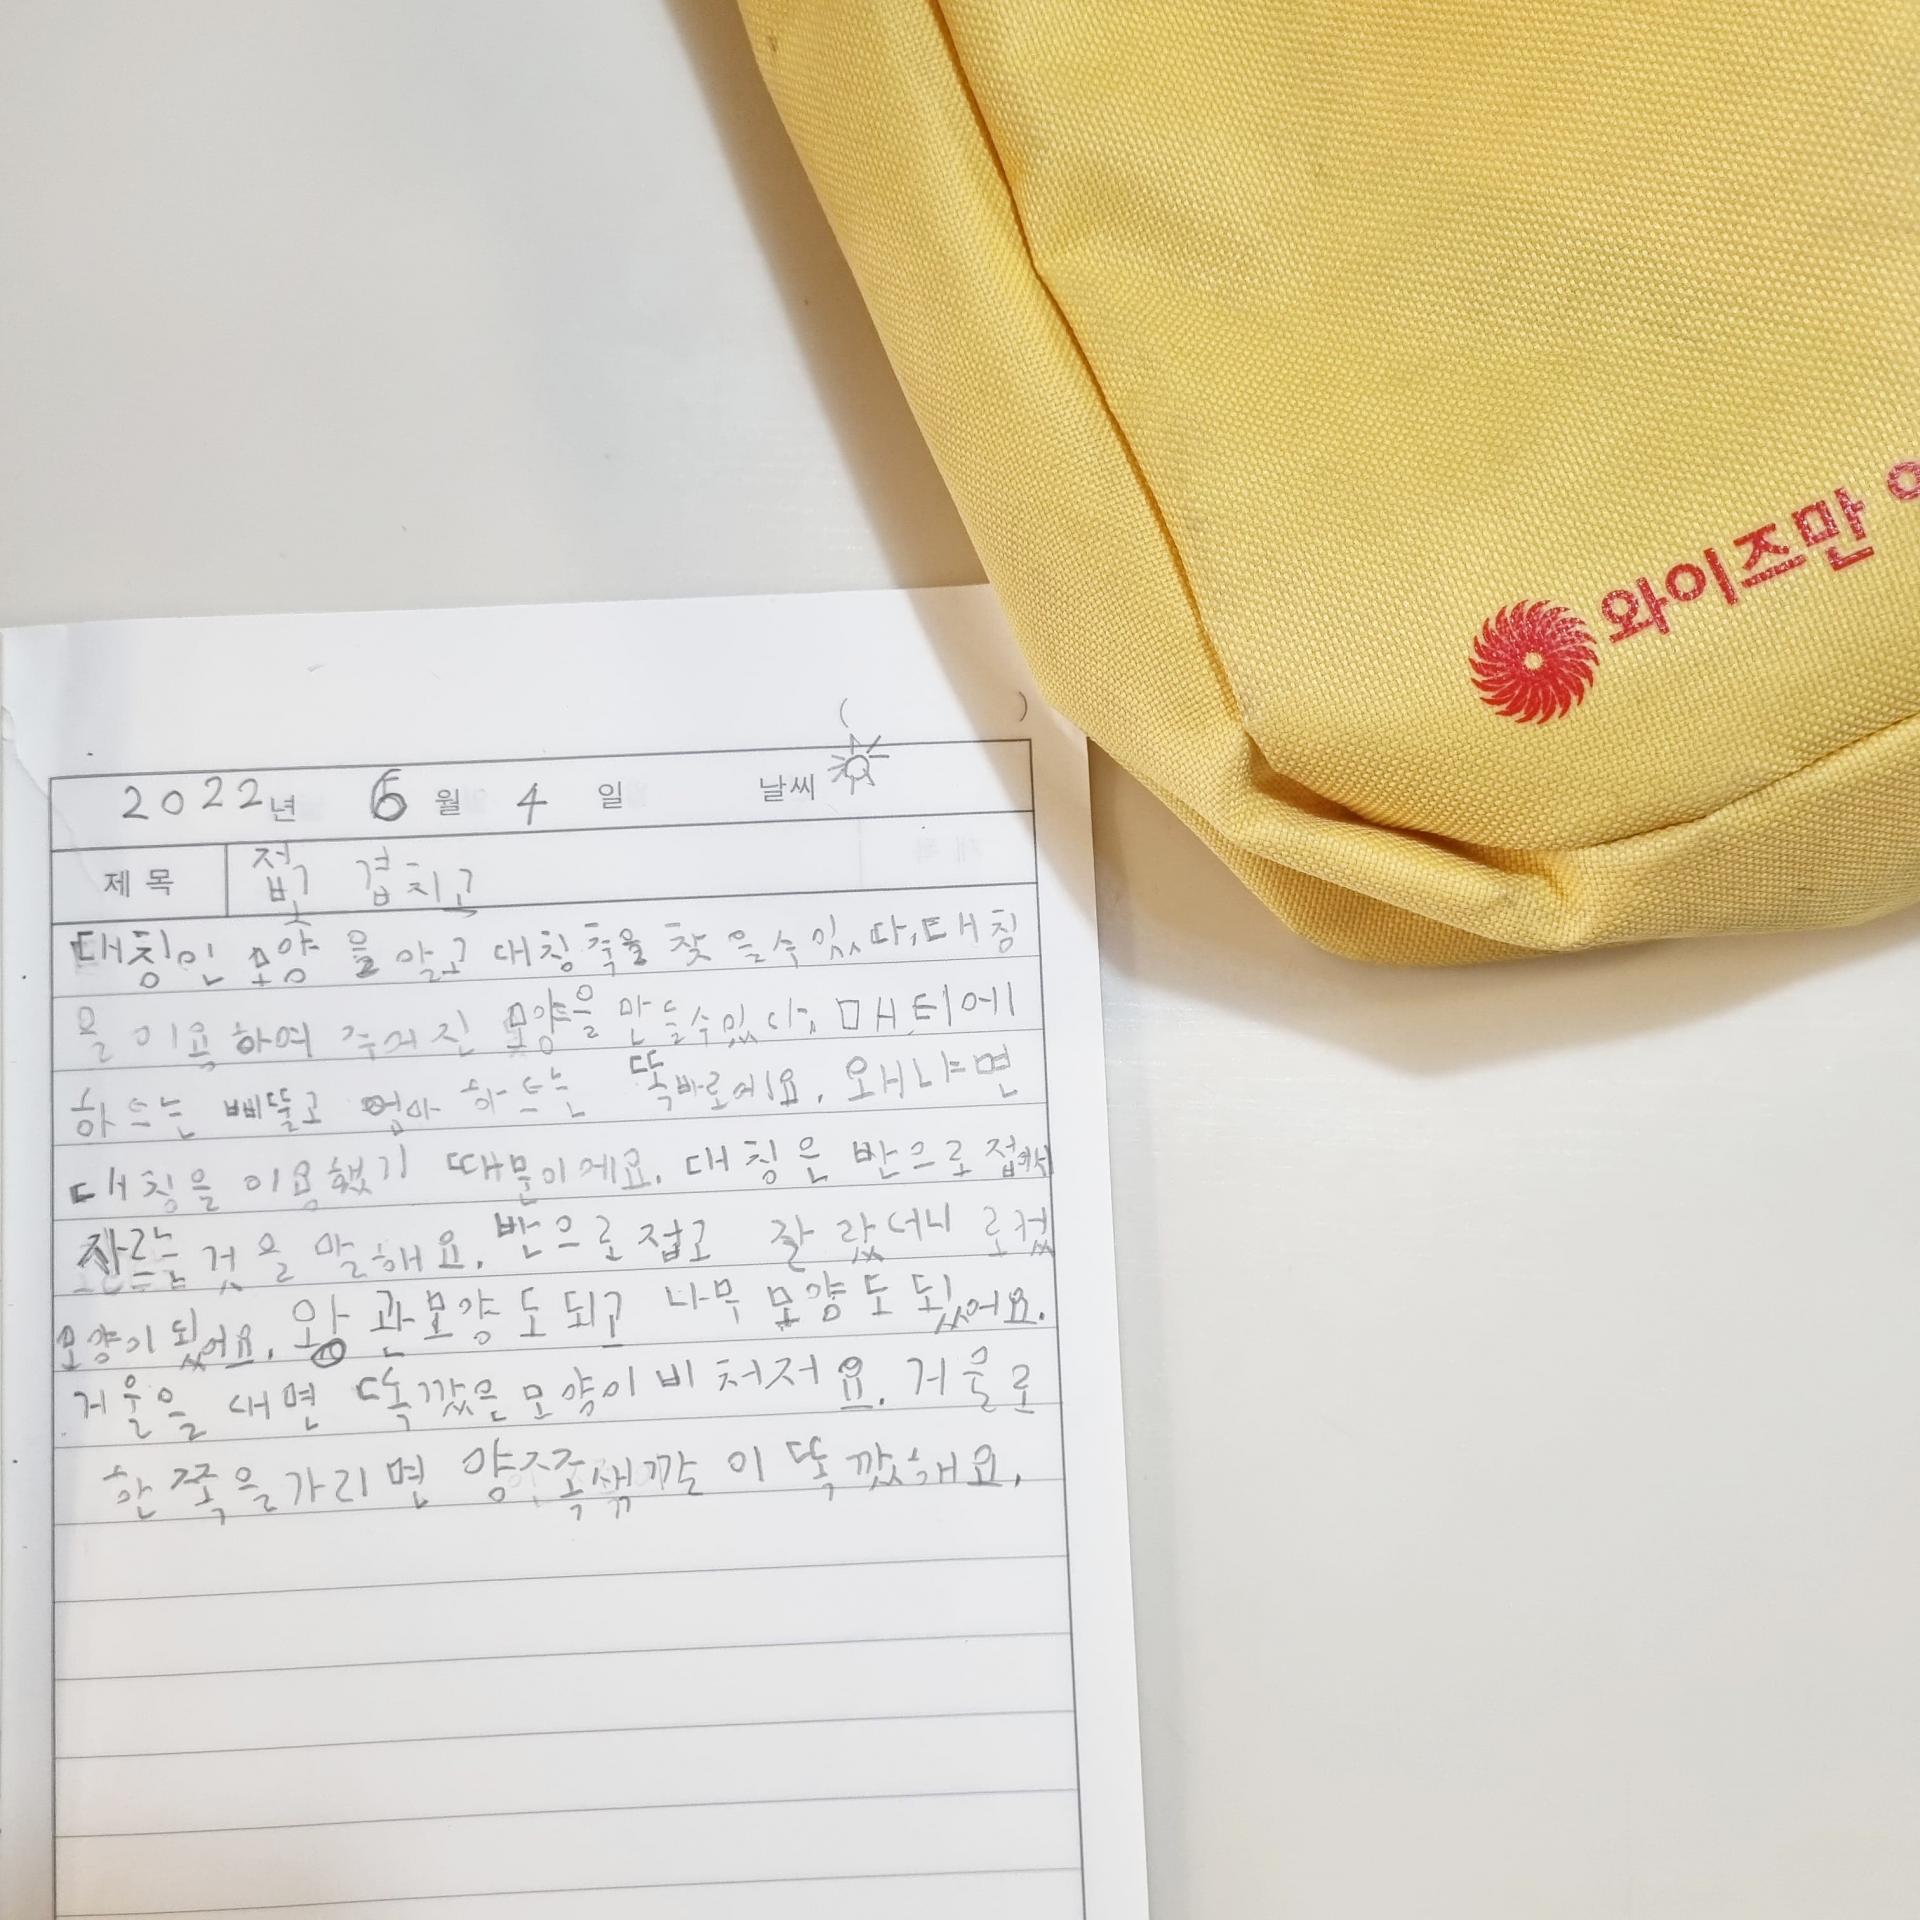 와이즈만
( )
2022년 6월 4일 날씨
제목 접고 겹치고
대칭인 모양을 알고 대칭축을 찾을수있다. 대칭
을 이욕하여 주어진 모양을 만들수있다. 매티에
하트는 삐뚤고 엄마 하트는 똑바로에요. 왜냐하면
대칭을 이용했기 때문이에요. 대칭은 반으로 접어서
자르는 것을 말해요. 반으로 접고 잘랐더니 로켓
모양이 됬어요. 왕관모양도 되고 나무 모양도 됬어요.
거울을 대면 똑깠은 모양이 비처저요. 거울로
한쪽을 가리면 양쪽색깔이 똑깠해요.